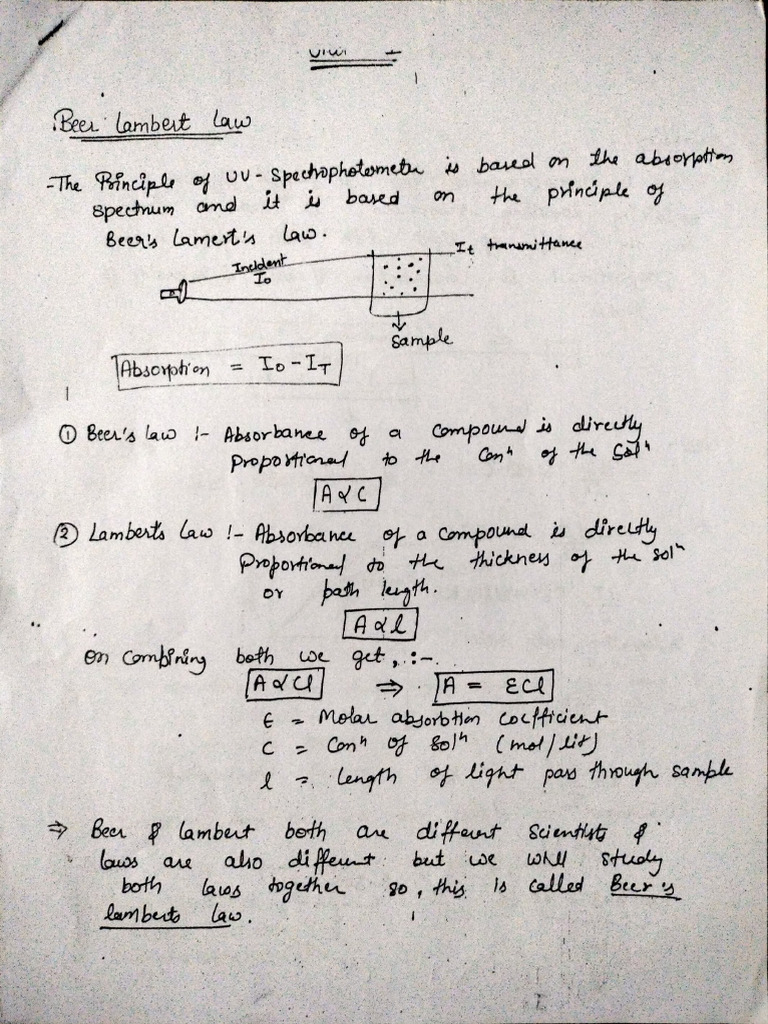 Unit - I
Beer Lambert Law
- The Principle of UV - Spectrophotometer is based on the absorption
spectrum and it is based on the principle of
Beer's Lamert's Law.
Incident
I₀
It transmittance
Sample
Absorption = I₀ - IT
① Beer's law :- Absorbance of a compound is directly
Proportional to the Conⁿ of the Solⁿ
A ∝ C
② Lamberts Law :- Absorbance of a compound is directly
Proportional to the thickness of the solⁿ
or path length.
A ∝ l
On Combining both we get, :-
A ∝ Cl ⇒ A = ECl
E = Molar absorbtion coefficient
C = Conⁿ of Solⁿ (mol/lit)
l = Length of light pass through sample
⇒ Beer & lambert both are different Scientists &
laws are also different but we will study
both laws together so, this is called Beer's
lamberts Law.